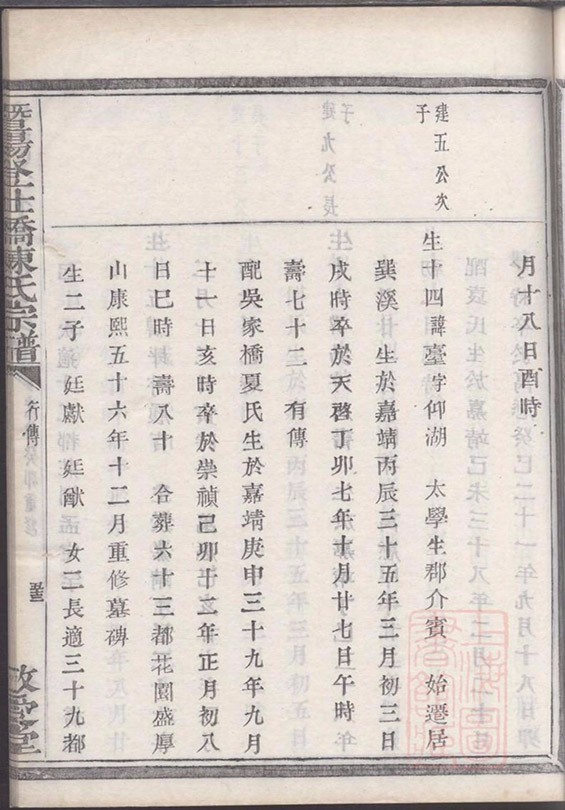 月十八日酉時
建五公次
子
生十四諱臺字仰湖 太學生郡介賓 始遷居
巽溪 生於嘉靖丙辰三十五年三月初三日
戌時卒於天啓丁卯七年十月廿七日午時
壽七十二 有傳
配吳家橋夏氏生於嘉靖庚申三十九年九月
十一日亥時卒於崇禎己卯十二年正月初八
日巳時 壽八十 合葬六十三都花園盛厚
山康熙五十六年十二月重修墓碑
生二子 廷獻 廷猷 女三長適三十九都
暨陽
橋陳氏宗譜
行傳
敬愛堂